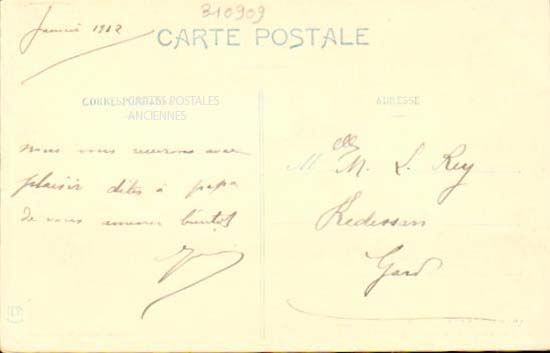 310909
Janvier 1912
CARTE POSTALE
CORRESPONDANCE
CARTES POSTALES
ANCIENNES
nous vous recevrons avec
plaisir dites à papa
de vous amener bientôt
ADRESSE
Melles M. L. Rey
Redessan
Gard